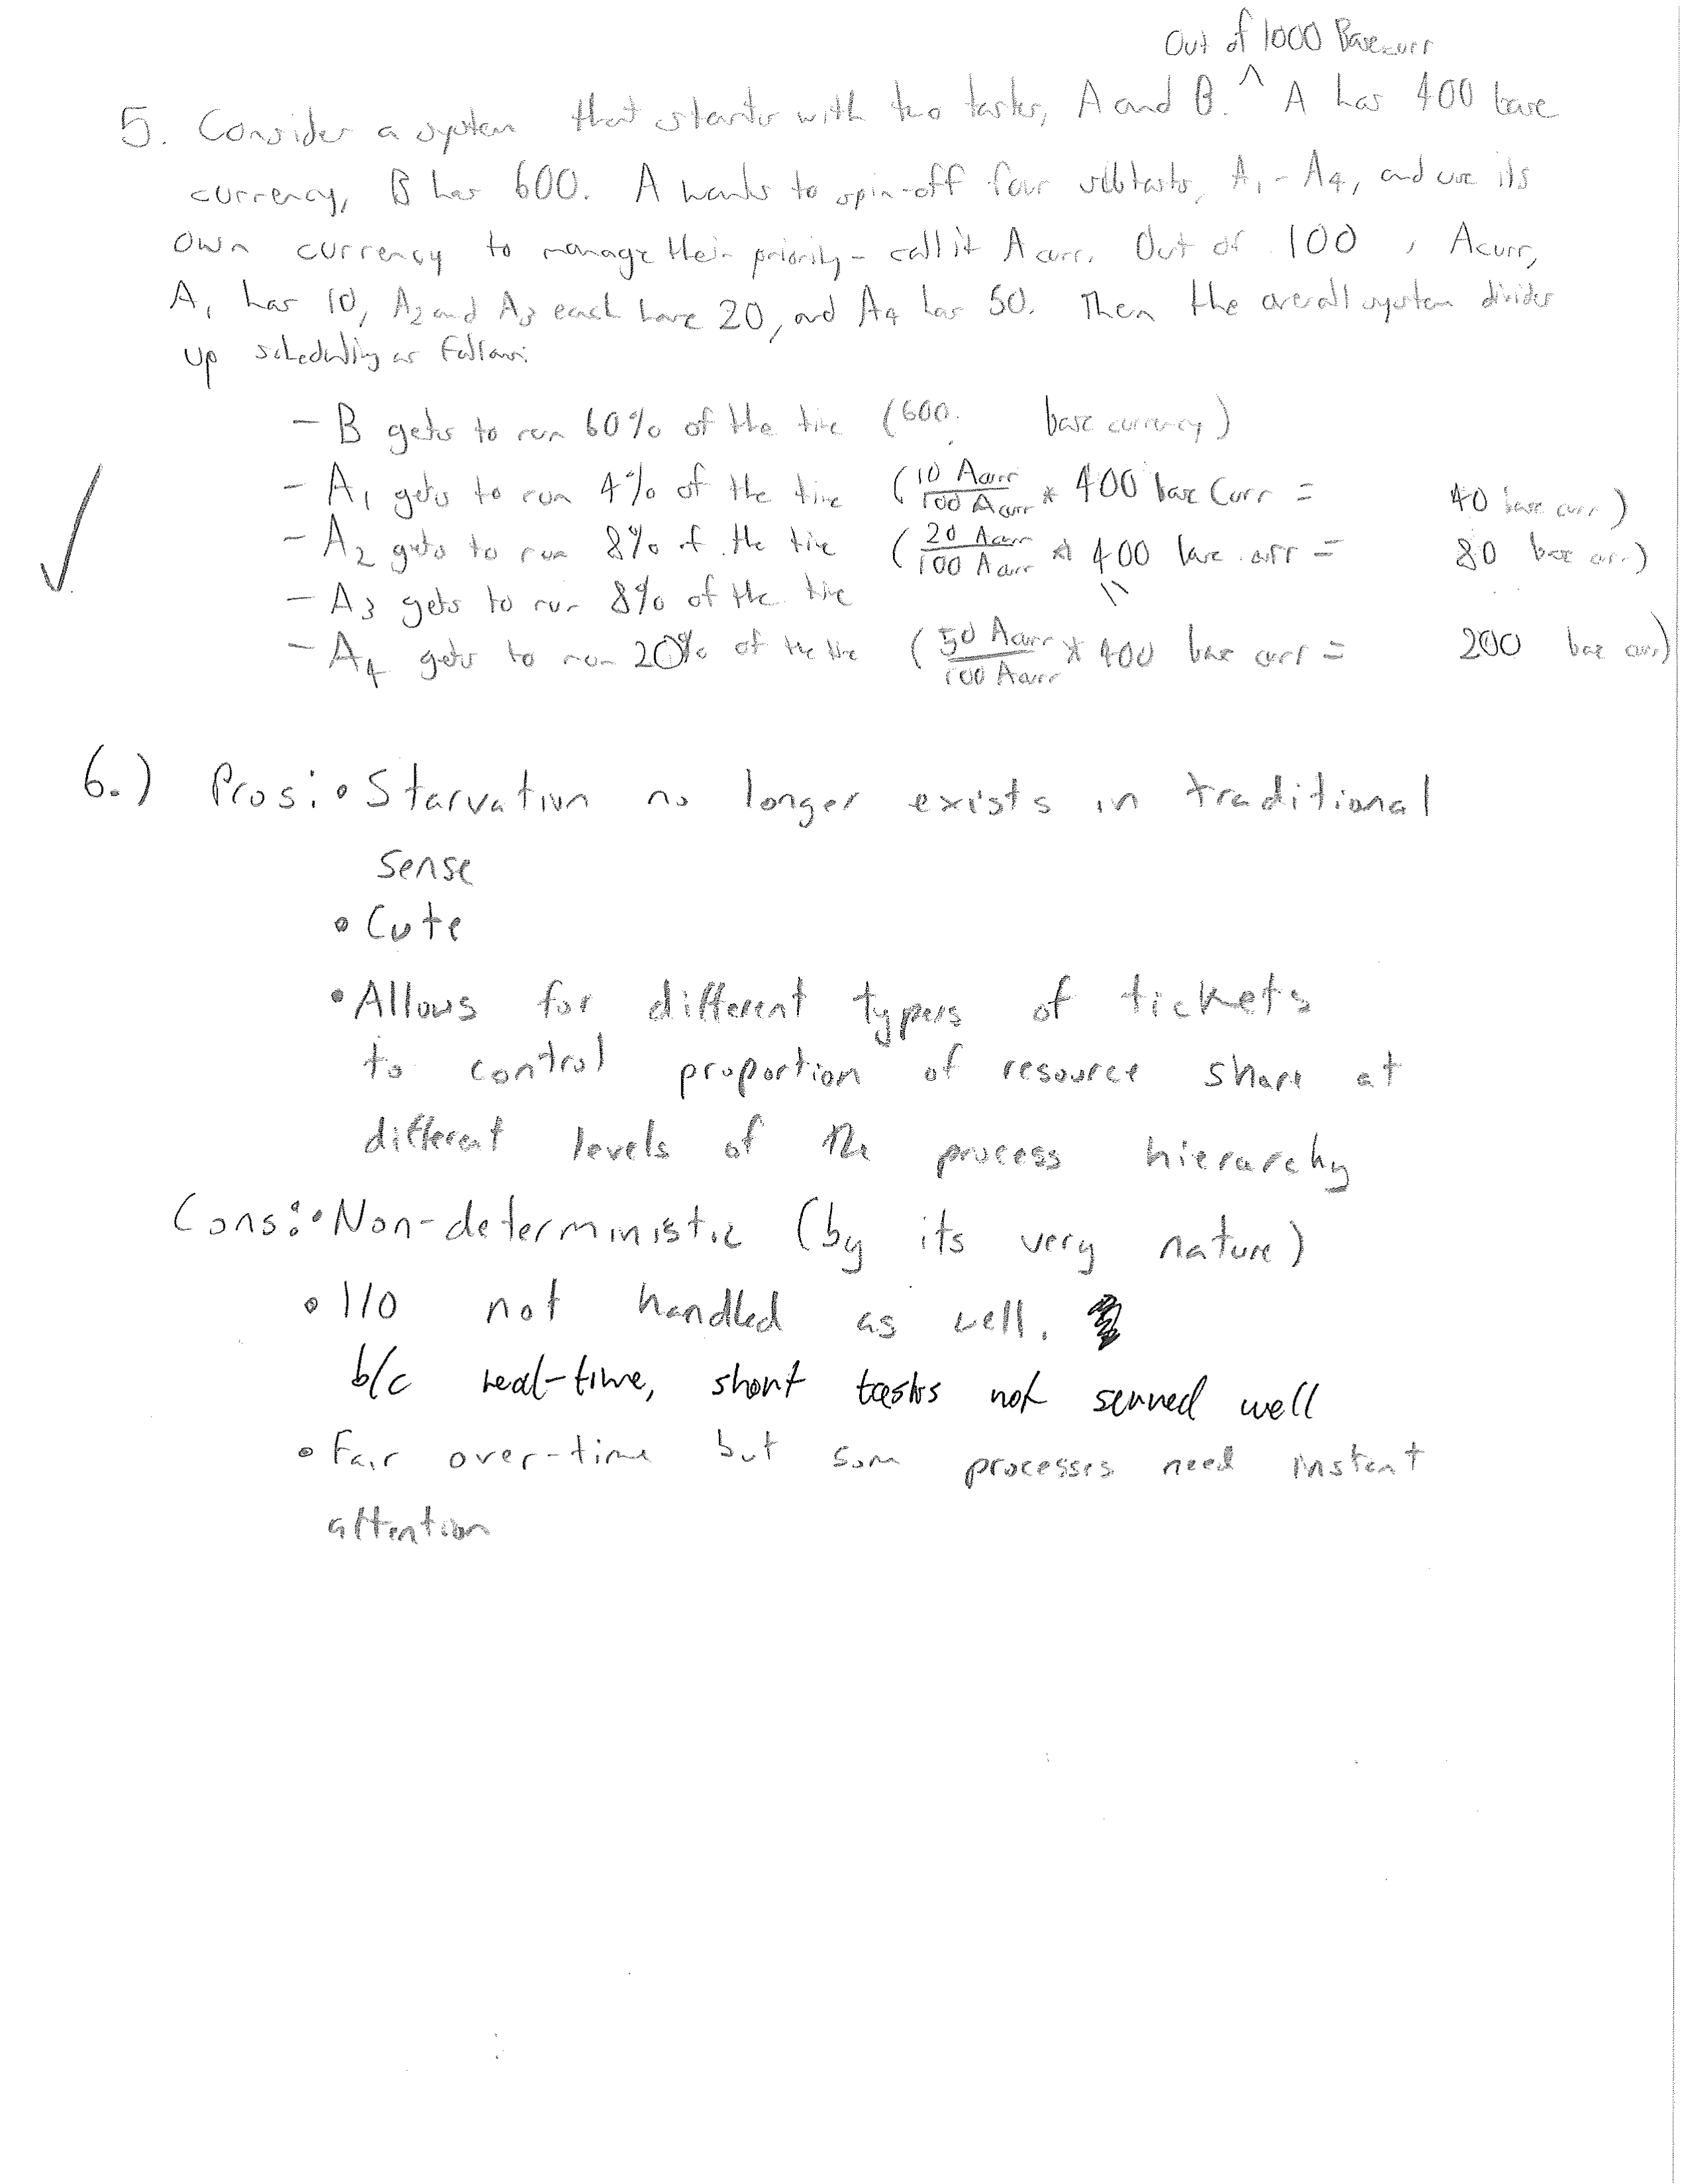 Out of 1000 Basecurr
5. Consider a system that starts with two tasks, A and B. ^ A has 400 base
currency, B has 600. A wants to spin-off four subtasks, A1 - A4, and use its
own currency to manage their priority - call it Acurr. Out of 100 , Acurr,
A1 has 10, A2 and A3 each have 20, and A4 has 50. Then the overall system divides
up scheduling as follows:
- B gets to run 60% of the time (600 base currency)
- A1 gets to run 4% of the time (10 Acurr / 100 Acurr * 400 base curr = 40 base curr)
- A2 gets to run 8% of the time (20 Acurr / 100 Acurr * 400 base curr = 80 base curr)
- A3 gets to run 8% of the time "
- A4 gets to run 20% of the time (50 Acurr / 100 Acurr * 400 base curr = 200 base curr)
6.) Pros: • Starvation no longer exists in traditional
sense
• Cute
• Allows for different types of tickets
to control proportion of resource share at
different levels of the process hierarchy
Cons: • Non-deterministic (by its very nature)
• I/O not handled as well.
b/c real-time, short tasks not served well
• Fair over-time but some processes need instant
attention